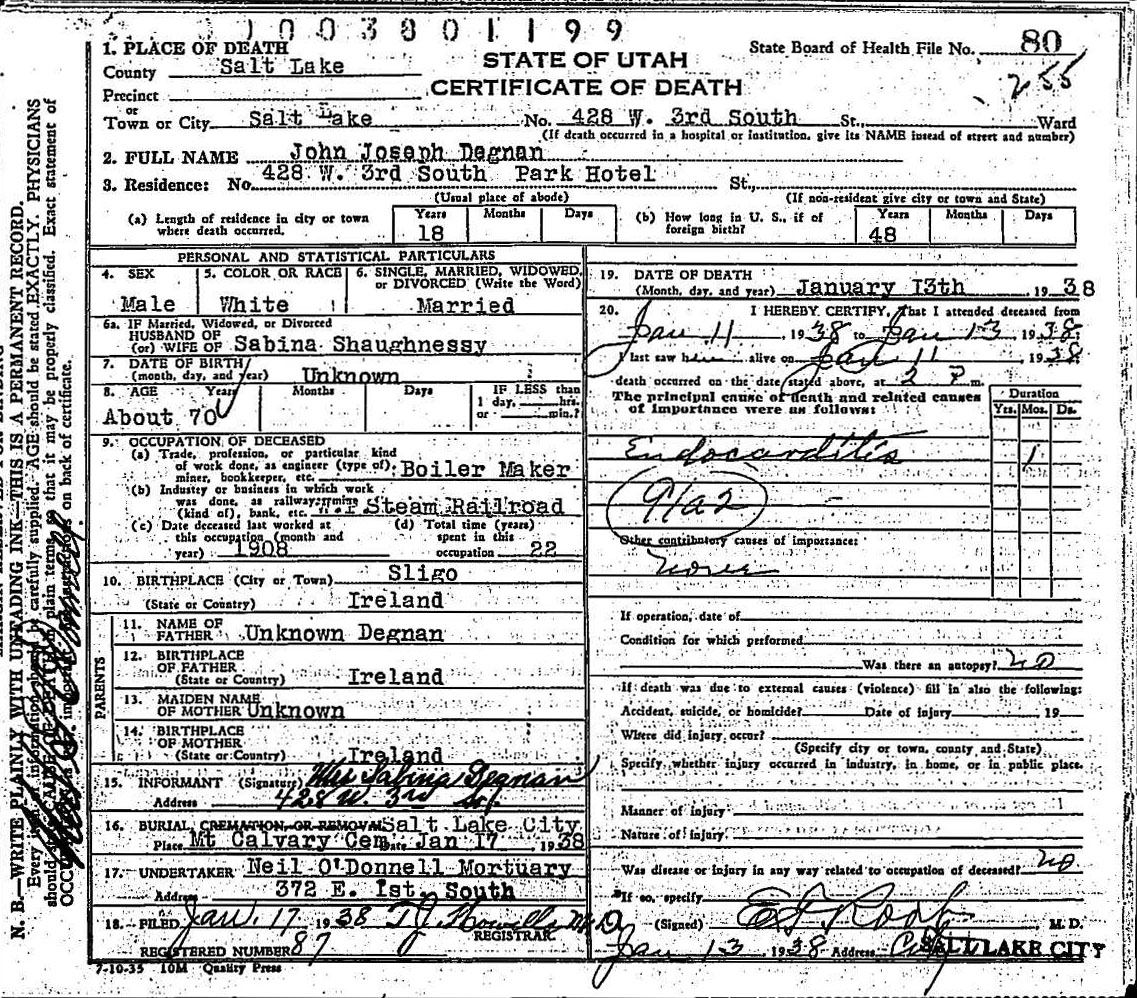 1003801199
1. PLACE OF DEATH
County Salt Lake
Precinct
or
Town or City Salt Lake
STATE OF UTAH
CERTIFICATE OF DEATH
State Board of Health File No. 80
255
No. 428 W. 3rd South St., Ward
(If death occurred in a hospital or institution, give its NAME instead of street and number)
2. FULL NAME John Joseph Degnan
3. Residence: No. 428 W. 3rd South Park Hotel St.,
(Usual place of abode) (If non-resident give city or town and State)
(a) Length of residence in city or town where death occurred. Years 18 Months Days
(b) How long in U. S., if of foreign birth? Years 48 Months Days
PERSONAL AND STATISTICAL PARTICULARS
4. SEX Male
5. COLOR OR RACE White
6. SINGLE, MARRIED, WIDOWED, or DIVORCED (Write the Word) Married
6a. IF Married, Widowed, or Divorced
HUSBAND OF
(or) WIFE OF Sabina Shaughnessy
7. DATE OF BIRTH
(month, day, and year) Unknown
8. AGE Years Months Days IF LESS than
1 day, hrs.
or min.?
About 70
9. OCCUPATION OF DECEASED
(a) Trade, profession, or particular kind
of work done, as engineer (type of),
miner, bookkeeper, etc. Boiler Maker
(b) Industry or business in which work
was done, as railway, mine
(kind of), bank, etc. Steam Railroad
(c) Date deceased last worked at
this occupation (month and
year) 1908
(d) Total time (years)
spent in this
occupation 22
10. BIRTHPLACE (City or Town) Sligo
(State or Country) Ireland
PARENTS
11. NAME OF
FATHER Unknown Degnan
12. BIRTHPLACE
OF FATHER
(State or Country) Ireland
13. MAIDEN NAME
OF MOTHER Unknown
14. BIRTHPLACE
OF MOTHER
(State or Country) Ireland
15. INFORMANT (Signature) Mrs Sabina Degnan
Address 428 W. 3rd So.
16. BURIAL, CREMATION, OR REMOVAL Salt Lake City
Place Mt Calvary Cem Date Jan 17 1938
17. UNDERTAKER Neil O'Donnell Mortuary
Address 372 E. 1st. South
18. FILED Jan. 17 1938 T J Howells M D
REGISTRAR
REGISTERED NUMBER 87
7-10-35 10M Quality Press
19. DATE OF DEATH
(Month, day, and year) January 13th 1938
20. I HEREBY CERTIFY, That I attended deceased from
Jan 11 1938 to Jan 13 1938
I last saw him alive on Jan 11 1938
death occurred on the date stated above, at 2 P m.
The principal cause of death and related causes
of importance were as follows:
Duration
Yrs. Mos. Ds.
Endocarditis 1
91a2
Other contributory causes of importance:
None
If operation, date of
Condition for which performed
Was there an autopsy? no
If death was due to external causes (violence) fill in also the following:
Accident, suicide, or homicide? Date of injury 19
Where did injury occur?
(Specify city or town, county and State)
Specify whether injury occurred in industry, in home, or in public place.
Manner of injury
Nature of injury
Was disease or injury in any way related to occupation of deceased? no
If so, specify
(Signed) M. D.
Jan 13 1938 Address City SALT LAKE CITY
N. B.—WRITE PLAINLY WITH UNFADING INK—THIS IS A PERMANENT RECORD.
Every information should be carefully supplied. AGE should be stated EXACTLY. PHYSICIANS
should plain terms that it may be properly classified. Exact statement of
on back of certificate.